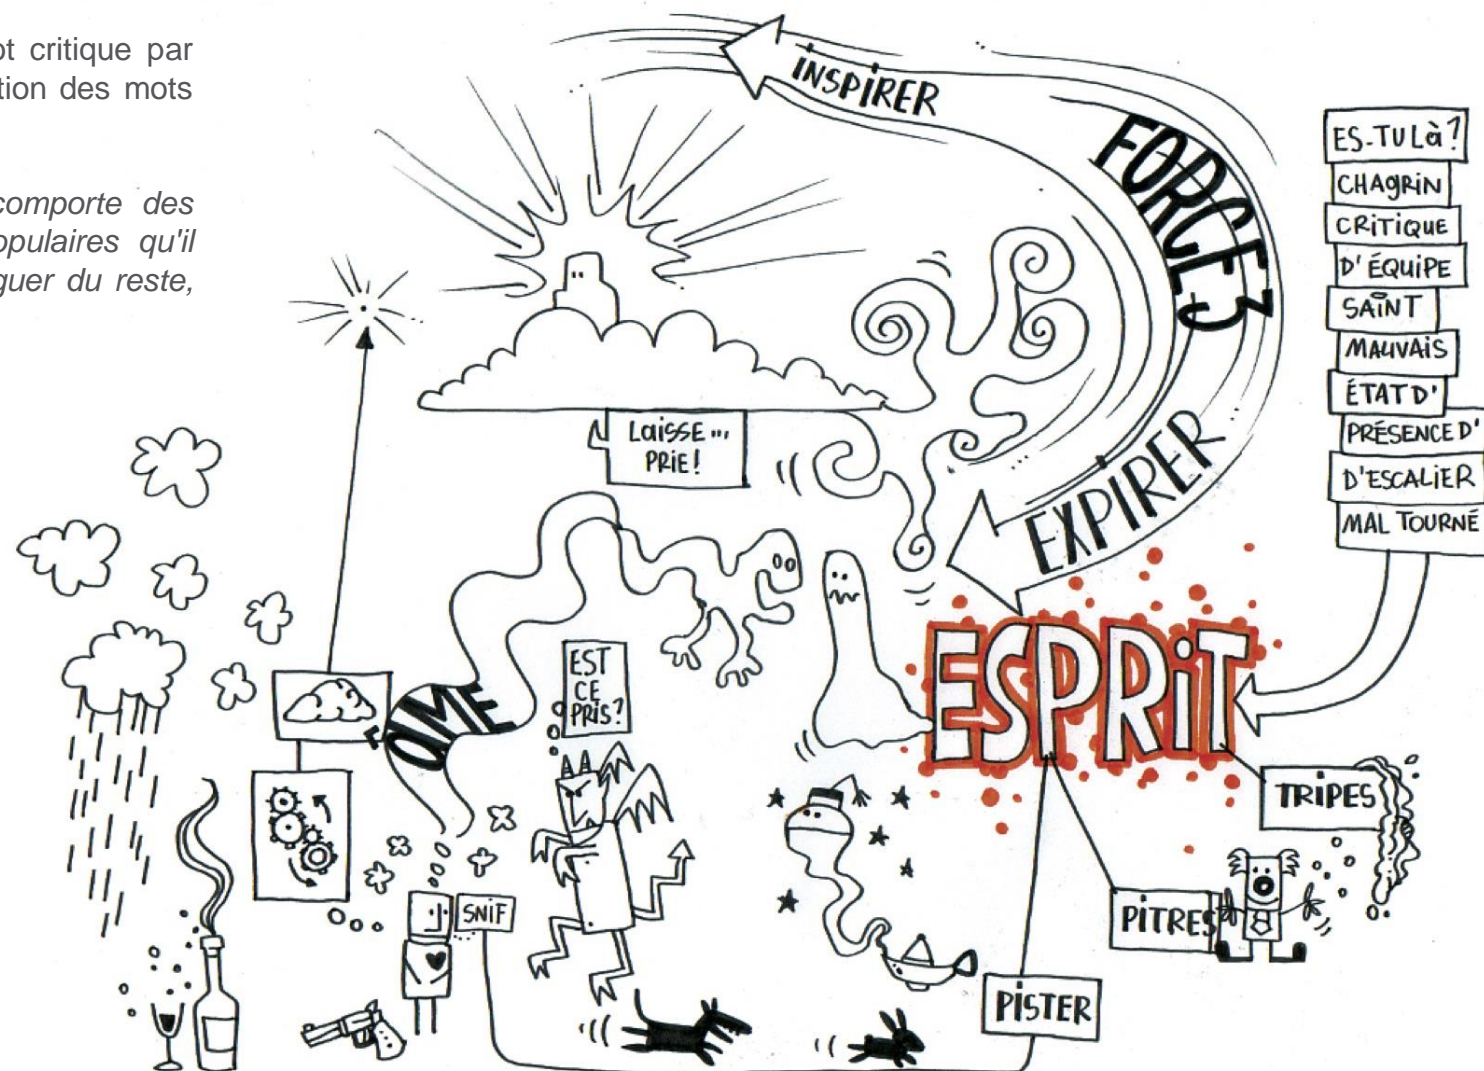 ot critique par
tion des mots
comporte des
opulaires qu'il
guer du reste,
INSPIRER
FORCE 3
EXPIRER
ES-TU Là?
CHAGRIN
CRITIQUE
D'ÉQUIPE
SAINT
MAUVAIS
ÉTAT D'
PRÉSENCE D'
D'ESCALIER
MAL TOURNÉ
LAISSE...
PRIE!
EST
CE
PRIS?
ESPRIT
TRIPES
PITRES
PISTER
SNIF